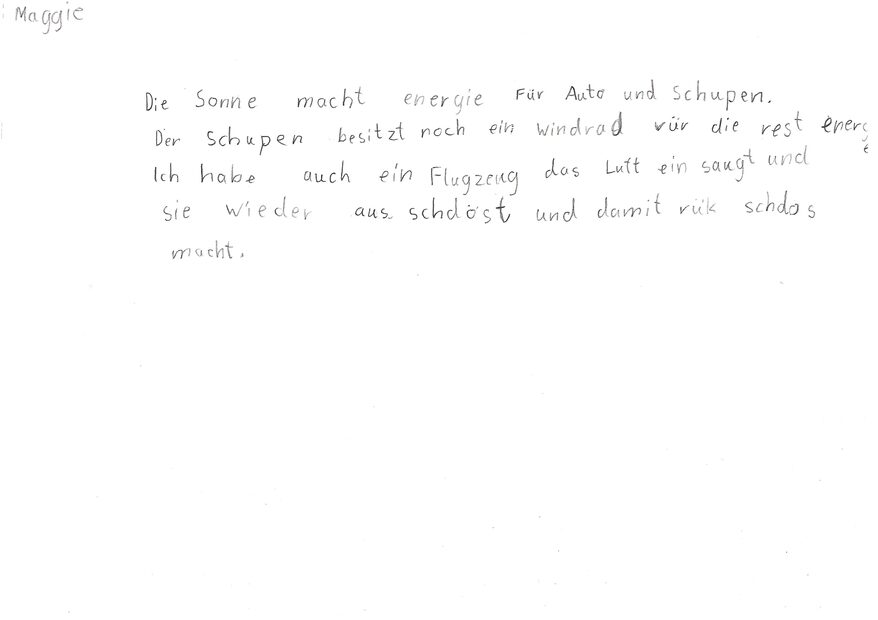 Maggie
Die Sonne macht energie Für Auto und schupen.
Der schupen besitzt noch ein windrad vür die rest energ
Ich habe auch ein Flugzeug das Luft ein saugt und
sie wieder aus schdöst und damit rük schdos
macht.